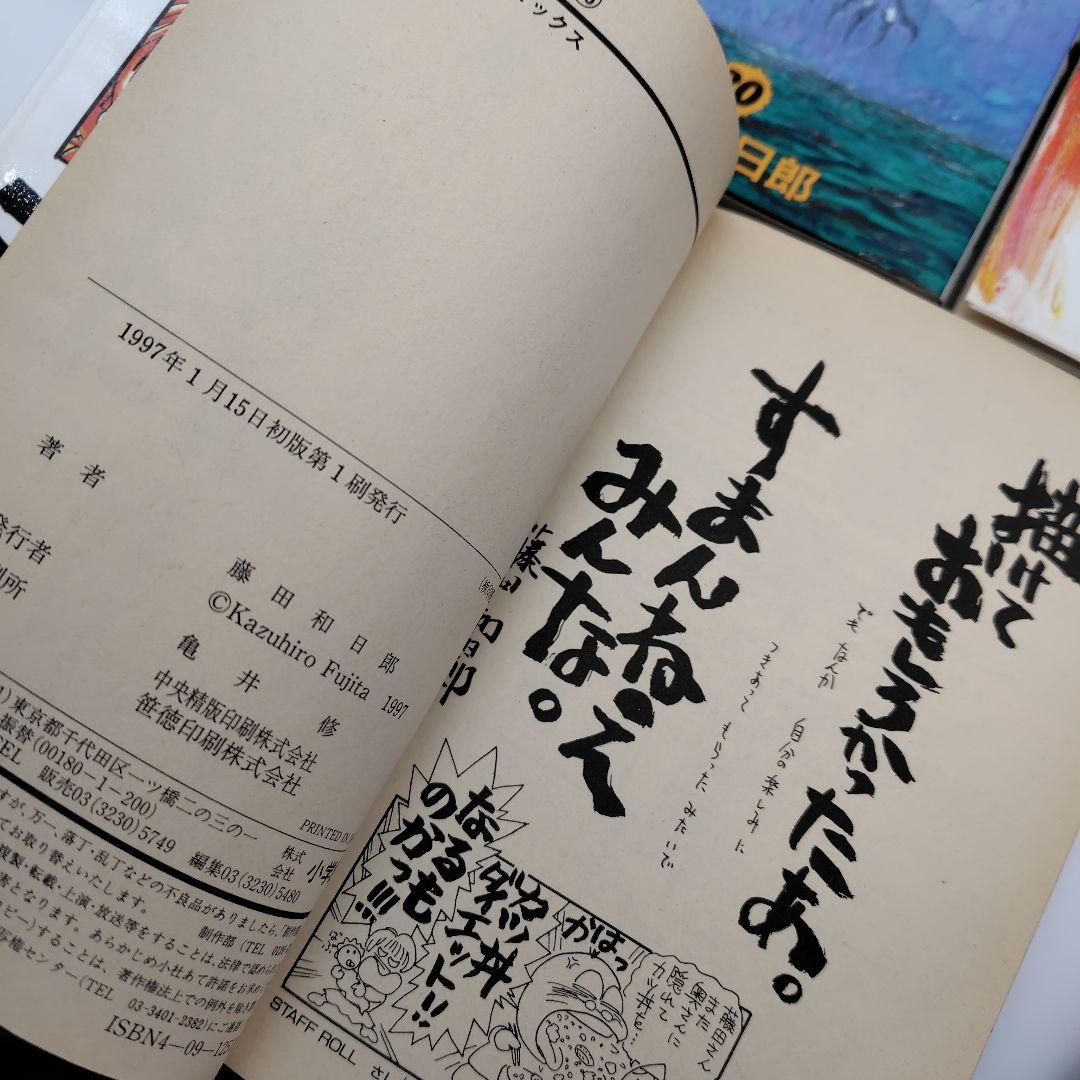 ックス
1997年1月15日初版第1刷発行
著者
藤田和日郎
©Kazuhiro Fujita 1997
発行者
亀井 修
刷所
中央精版印刷株式会社
笹徳印刷株式会社
東京都千代田区一ツ橋二の三の一
振替(00180-1-200)
TEL 販売03(3230)5749 編集03(3230)5480
PRINTED IN
株式会社 小学
すが、万一、落丁・乱丁などの不良品がありましたら、「制作
てお取り替えいたします。
制作部(TEL 0120
複製・転載・上演・放送等をすることは、法律で認めら
害となります。あらかじめ小社あて許諾をお求め
ピー)することは、著作権法上での例外を除き
権センター(TEL 03-3401-2382)にご連
ISBN4-09-12
描けて
おもしろかったあ。
でも なんか 自分の楽しみに
つきあって もらった みたいで
すまんねえ
みんな。
藤田和日郎
なるもの
かっ!!!
ダイエット!!
がほっ
藤田さん
また
奥さんに
隠れて
カツ丼を
STAFF ROLL
日郎